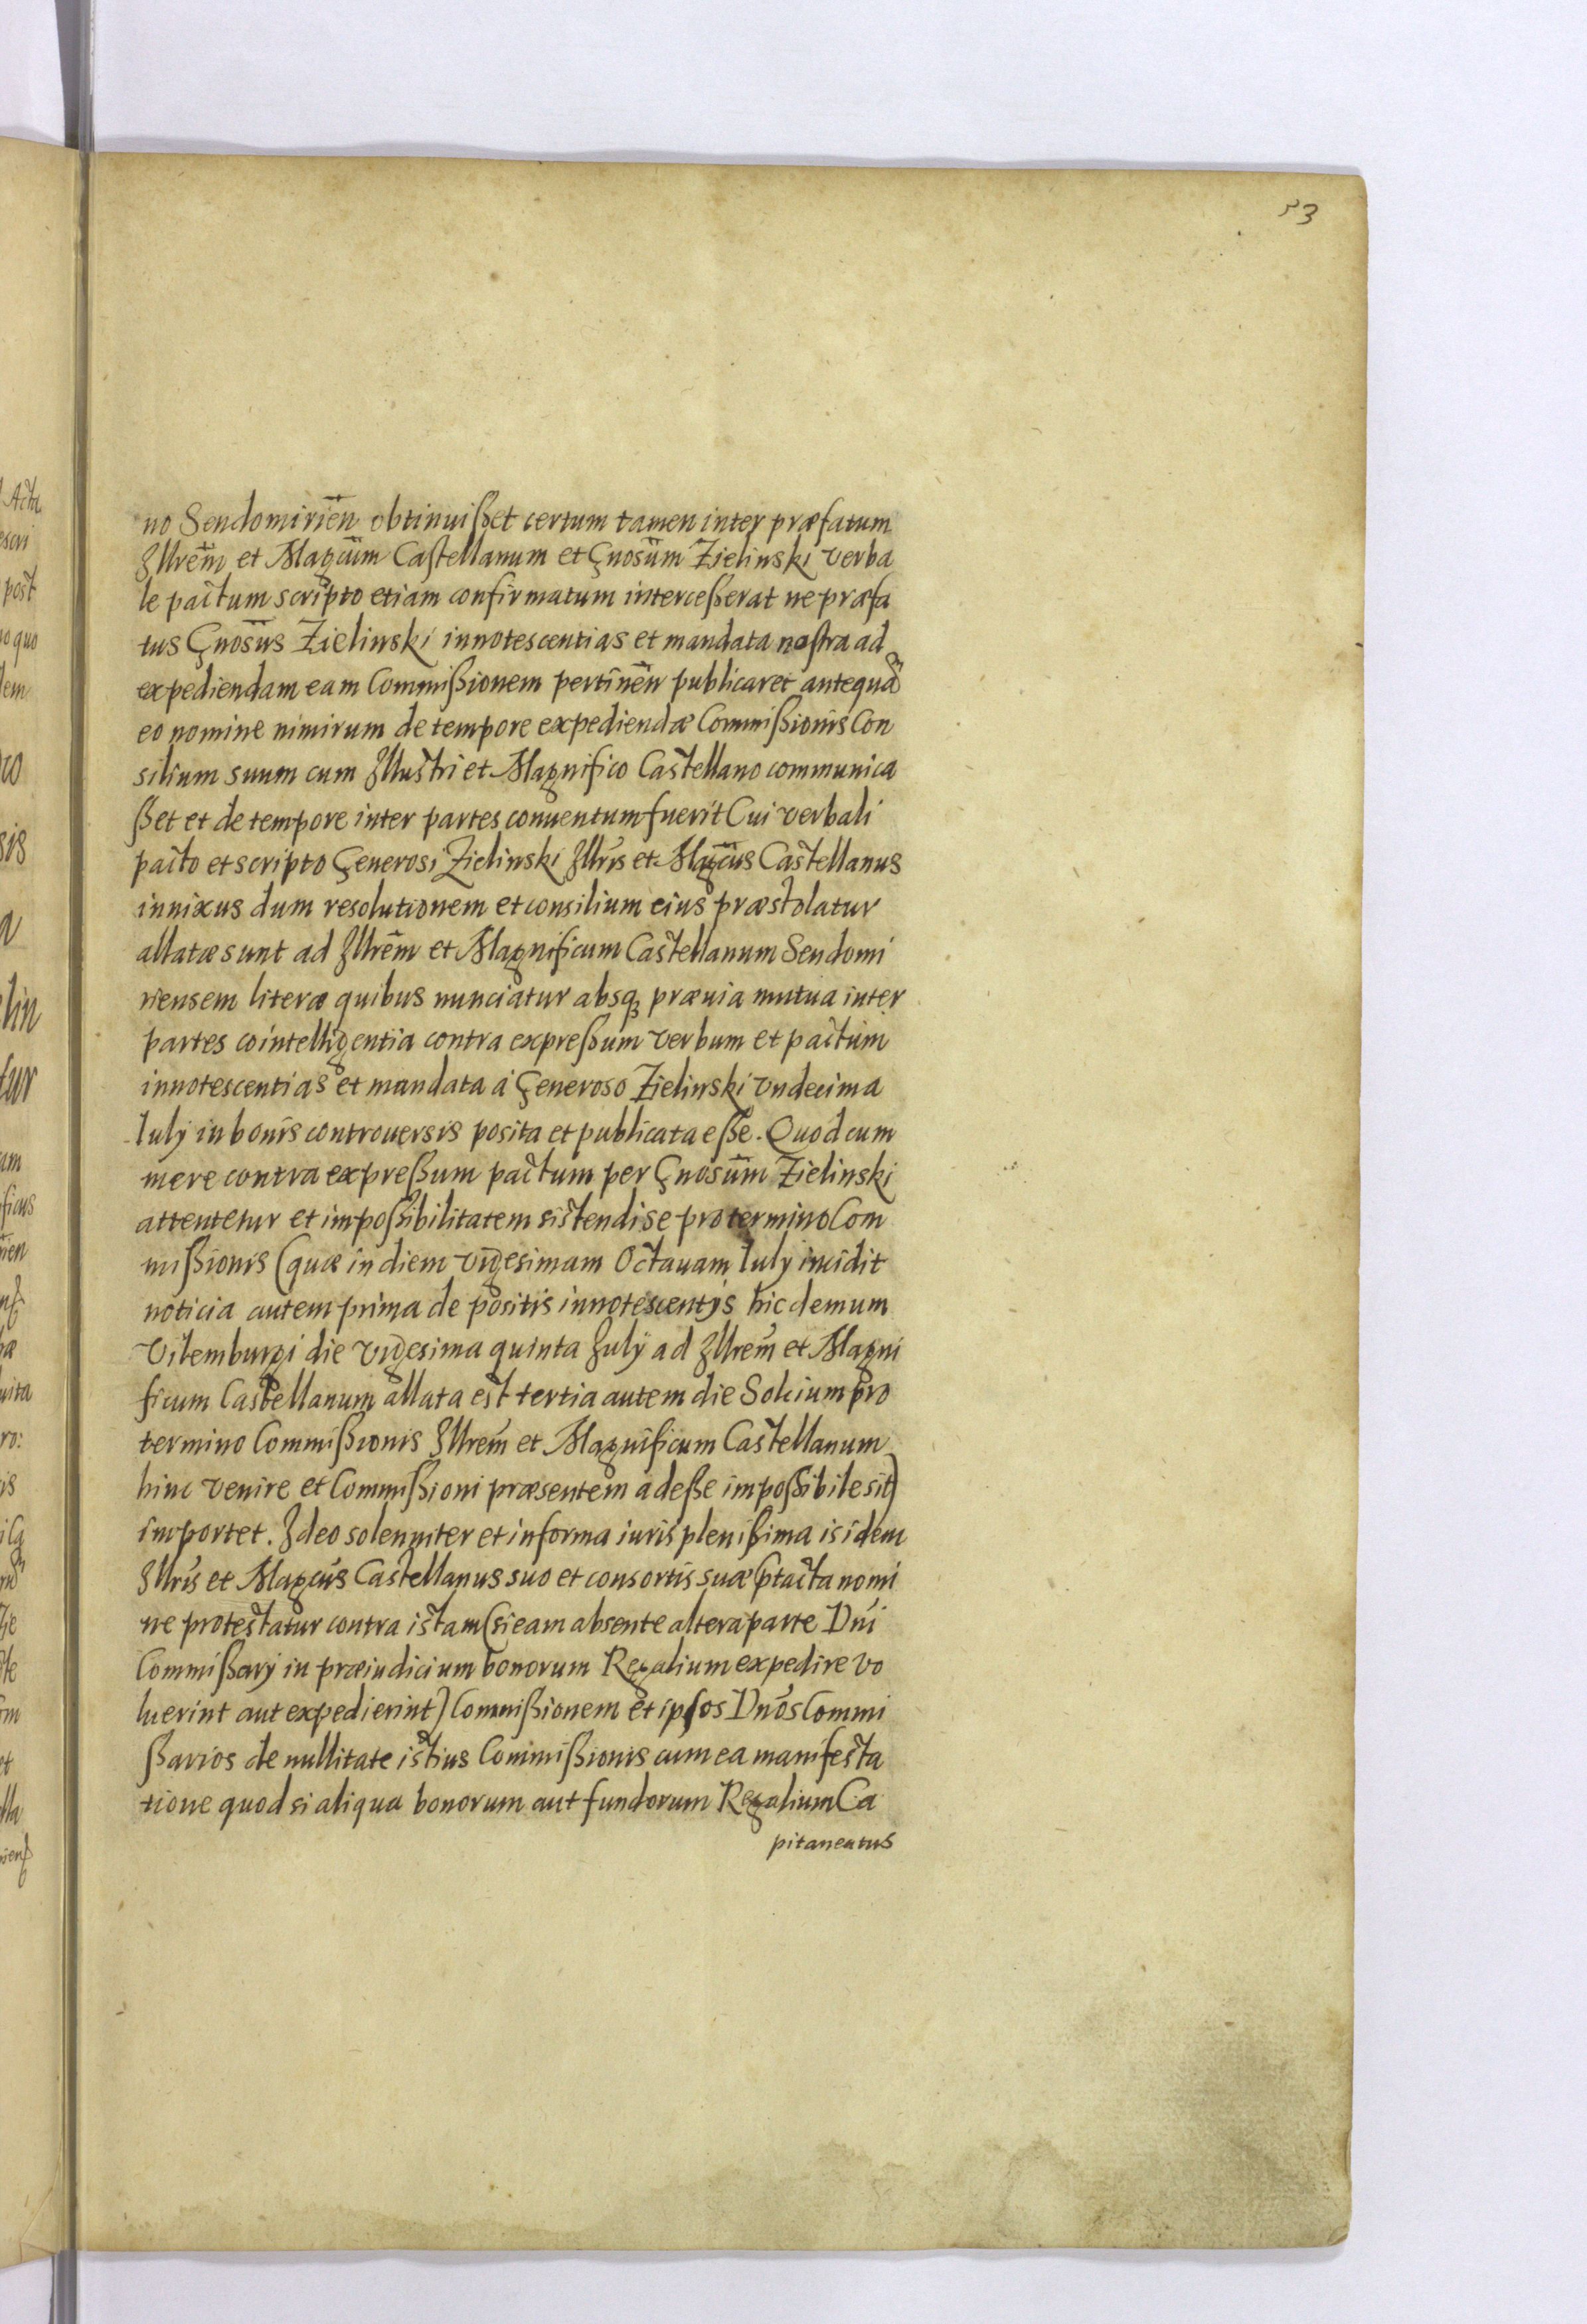 53
no Sendomirień obtinuißet certum tamen inter præfatum
Illrem̃ et Magcum̃ Castellanum et Gnosum̃ Zielinski verba
le pactum scripto etiam confirmatum interceßerat ne præfa
tus Gnosus̃ Zielinski innotescentias et mandata nostra ad
expediendam eam Commißionem pertinen̄ publicaret antequã
eo nomine nimirum de tempore expediendæ Commißionis Con
silium suum cum Illustri et Magnifico Castellano communica
ßet et de tempore inter partes conuentum fuerit Cui verbali
pacto et scripto Generosi Zielinski Illris̃ et Magcus̃ Castellanus
innixus dum resolutionem et consilium eius præstolatur
allatæ sunt ad Illrem̃ et Magnificum Castellanum Sendomi
riensem literæ quibus nunciatur absq; præuia mutua inter
partes cointelligentia contra expreßum verbum et pactum
innotescentias et mandata á Generoso Zielinski vndecima
Iulÿ in bonis controuersis posita et publicata eße. Quod cum
mere contra expreßum pactum per Gnosum̃ Zielinski
attentetur et impoßibilitatem sistendi se pro termino Com
mißionis (quæ in diem vigesimam Octauam Iulÿ incidit
noticia autem prima de positis innotescentÿs hic demum
Vilemburgi die vigesima quinta Julÿ ad Illrem̃ et Magni
ficum Castellanum allata est tertia autem die Solcium pro
termino Commißionis Illrem̃ et Magnificum Castellanum
hinc venire et Commißioni præsentem adeße impoßibile sit)
importet. Ideo solenniter et in forma iuris plenißima is idem
Illris̃ et Magcus̃ Castellanus suo et consortis suæ ꝑtacta nomi
ne protestatur contra istam (si eam absente altera parte Dnĩ
Commißarÿ in præiudicium bonorum Regalium expedire vo
luerint aut expedierint) Commißionem et ipsos Dnos̃ Commi
ßarios de nullitate istius Commißionis cum ea manifesta
tione quod si aliqua bonorum aut fundorum Regalium Ca
pitaneatus